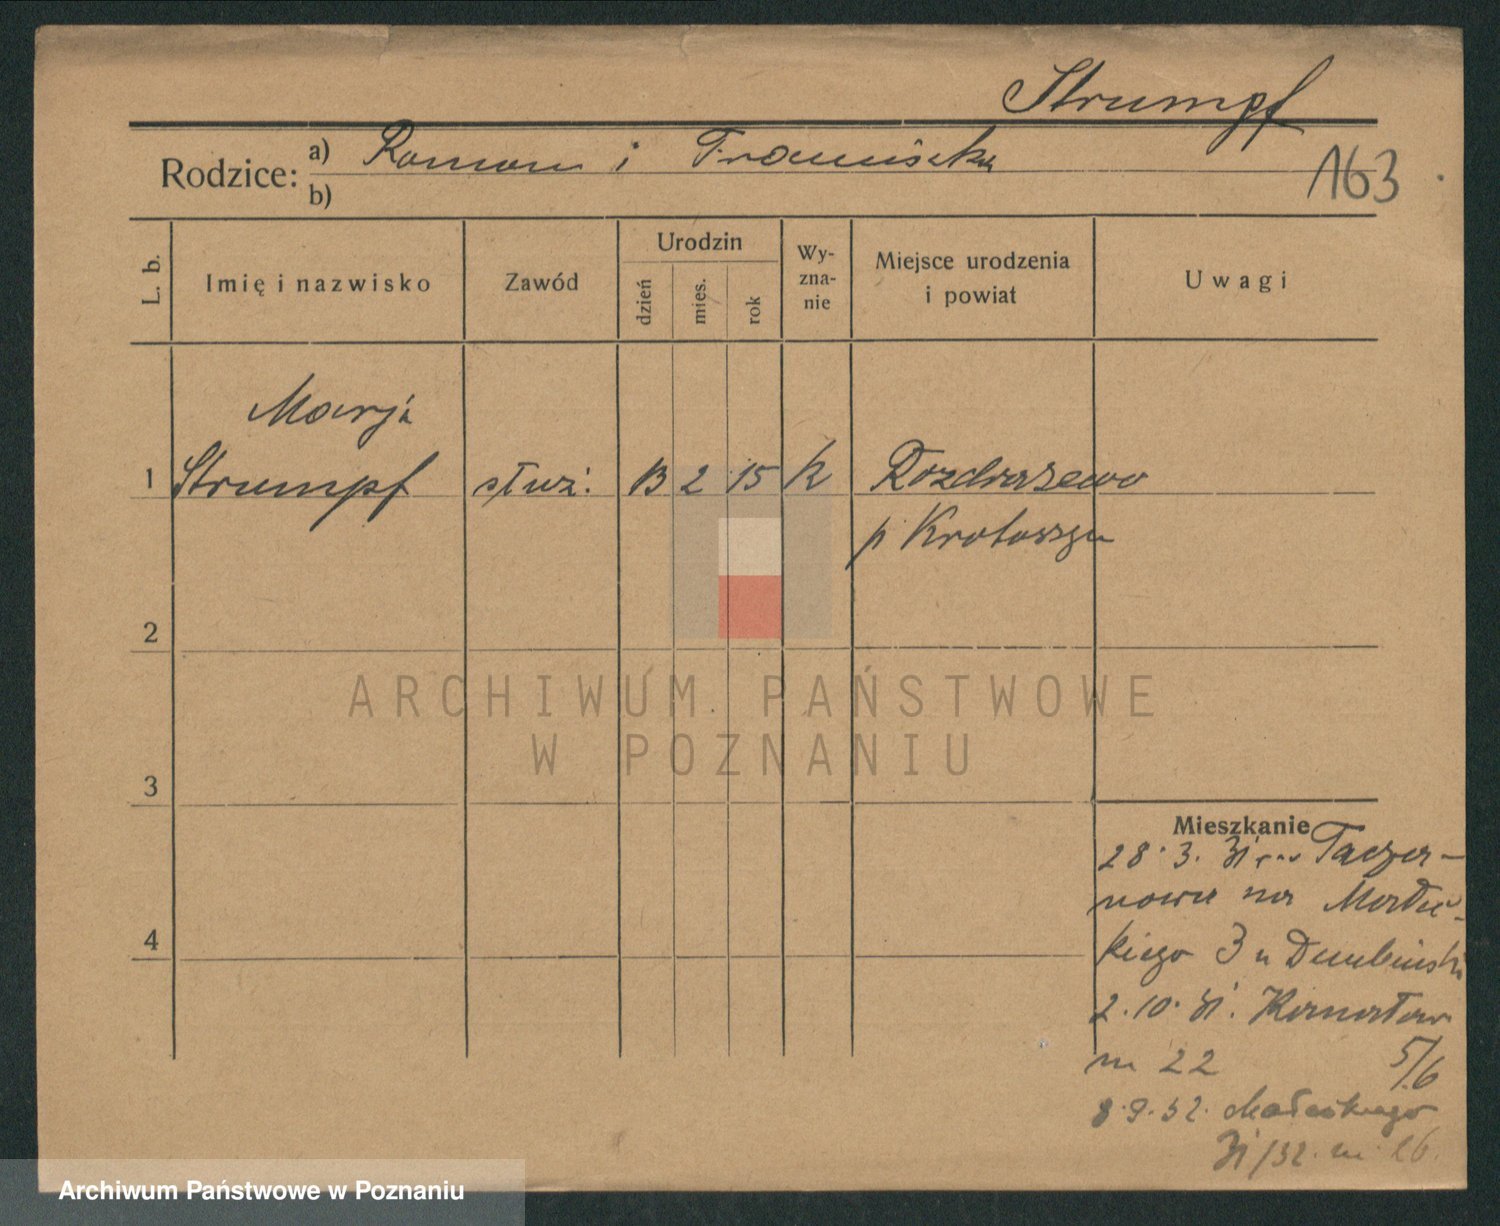 Strumpf
Rodzice: a) Roman i Franciszka
b)
163
L. b.
Imię i nazwisko
Zawód
Urodzin
dzień
mies.
rok
Wy-
zna-
nie
Miejsce urodzenia
i powiat
Uwagi
Marja
1 Strumpf służ. 13 2 15 k Rozdrażewo
p Krotoszyn
2
3
4
Mieszkanie
28.3.31 Taczar-
nowa na Małec-
kiego 3 u Dembiński
2.10.31. Kanałowa
m 22 5/6
8.9.32. Małeckiego
31/32. m. 26.
ARCHIWUM PAŃSTWOWE
W POZNANIU
Archiwum Państwowe w Poznaniu